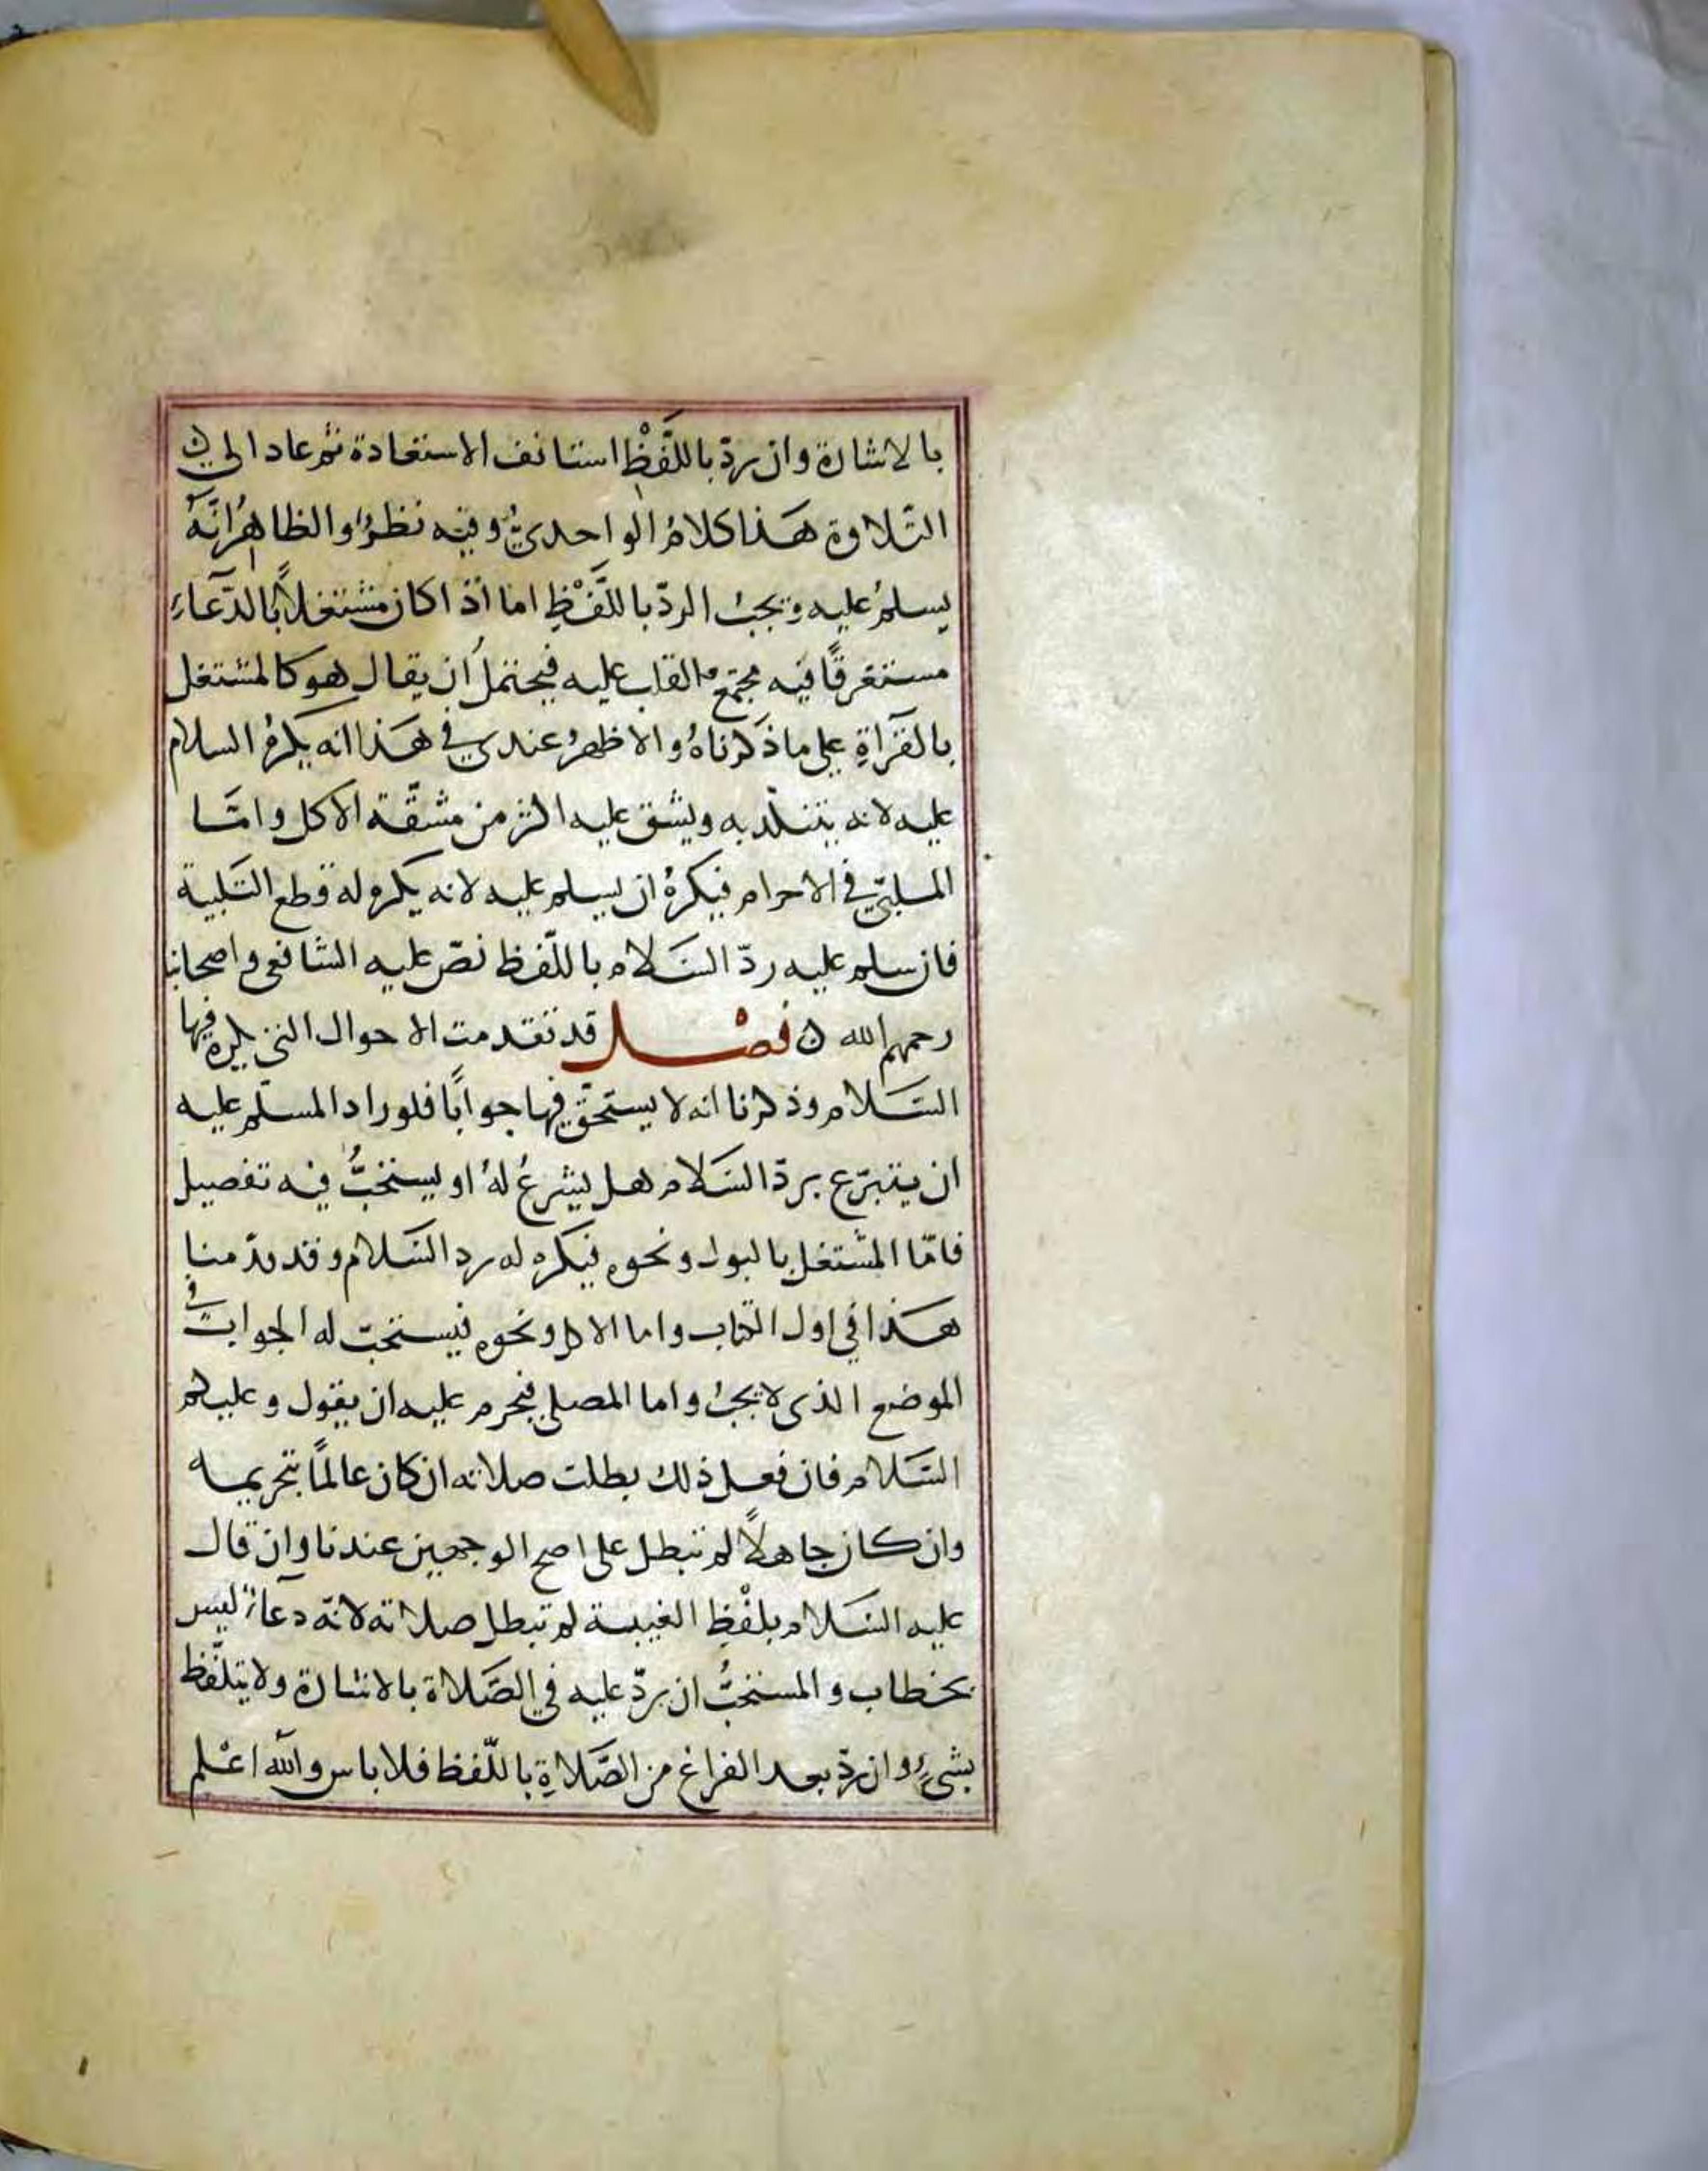 بالاشارة وان ردّ باللَّفْظِ استانف الاستعاذة ثم عاد الى
التّلاوة هَذا كلامُ الواحديُّ وفيه نظرٌ والظاهرُ انَّهُ
يسلمُ عليه ويجبُ الردّ باللَّفْظِ اما اذا كان مشتغلاً بالدّعآءِ
مستغرقًا فيه مجتمع القلب عليه فيحتملُ ان يقال هو كالمشتغل
بالقرآةِ على ما ذكرناهُ والاظهرُ عندي في هَذا انه يكرهُ السلام
عليه لانه يتنكّد به ويشق عليه اكثر من مشقّة الاكل وامَّا
الملبّي في الاحرام فيكرهُ ان يسلم عليه لانه يكره له قطع التَّلبية
فان سلم عليه ردّ السَّلام باللّفظ نصّ عليه الشافعى واصحابنا
رحمهم الله ن فصْل قد تقدمت الاحوال التى يكره فيها
السَّلام وذكرنا انه لا يستحقّ فيها جوابًا فلو اراد المسلّم عليه
ان يتبرّع بردّ السَّلام هل يشرعُ لهُ او يستحبُّ فيه تفصيل
فامّا المشتغل بالبول ونحوه فيكره له رد السَّلام وقد قدّمنا
هَذا في اول الكتاب واما الاكل ونحوه فيستحبّ له الجواب في
الموضع الذى لا يجبُ واما المصلي فيحرم عليه ان يقول وعليكم
السَّلام فان فعل ذلك بطلت صلاته ان كان عالمًا بتحريمه
وان كان جاهلاً لم تبطل على اصح الوجهين عندنا وان قال
عليه السَّلام بلفْظِ الغيبة لم تبطل صلاته لانّه دعآءٌ ليس
بخطاب والمستحبُّ ان يردّ عليه في الصَّلاة بالاشارة ولا يتلفّظ
بشيءٍ وان ردّ بعد الفراغ من الصَّلاةِ باللّفظ فلا باس والله اعْلم